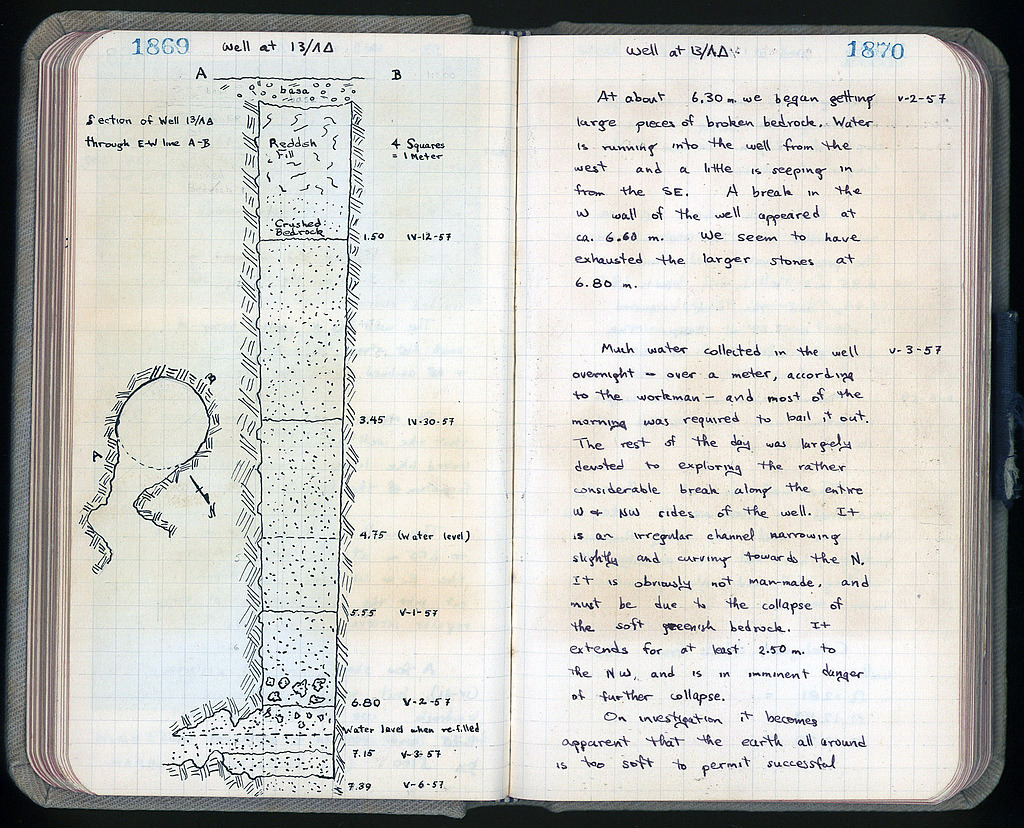 1869 Well at 13/ΛΔ
A B
basa
Section of Well 13/ΛΔ
through E-W line A-B
Reddish
Fill
4 Squares
= 1 Meter
Crushed
Bedrock
1.50 IV-12-57
3.45 IV-30-57
B
A
N
4.75 (water level)
5.55 V-1-57
6.80 V-2-57
Water level when re-filled
7.15 V-3-57
7.39 V-6-57
Well at 13/ΛΔ 1870
At about 6.30 m. we began getting V-2-57
large pieces of broken bedrock. Water
is running into the well from the
west and a little is seeping in
from the SE. A break in the
W wall of the well appeared at
ca. 6.60 m. We seem to have
exhausted the larger stones at
6.80 m.
Much water collected in the well V-3-57
overnight – over a meter, according
to the workman – and most of the
morning was required to bail it out.
The rest of the day was largely
devoted to exploring the rather
considerable break along the entire
W + NW sides of the well. It
is an irregular channel narrowing
slightly and curving towards the N.
It is obviously not man-made, and
must be due to the collapse of
the soft greenish bedrock. It
extends for at least 2.50 m. to
the NW, and is in imminent danger
of further collapse.
On investigation it becomes
apparent that the earth all around
is too soft to permit successful